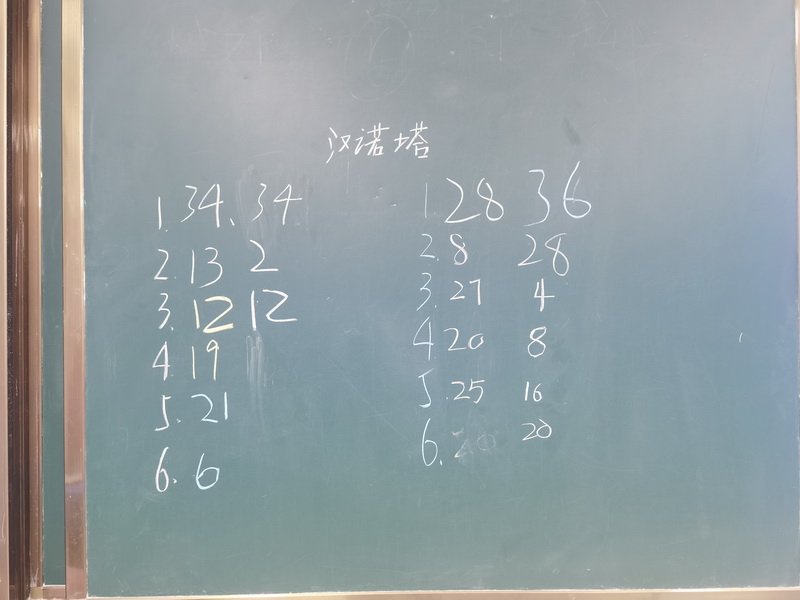 汉诺塔
1.34、34
2.13 2
3.12 12
4.19
5.21
6.6
1.28 36
2.8 28
3.27 4
4.20 8
5.25 16
6. 20